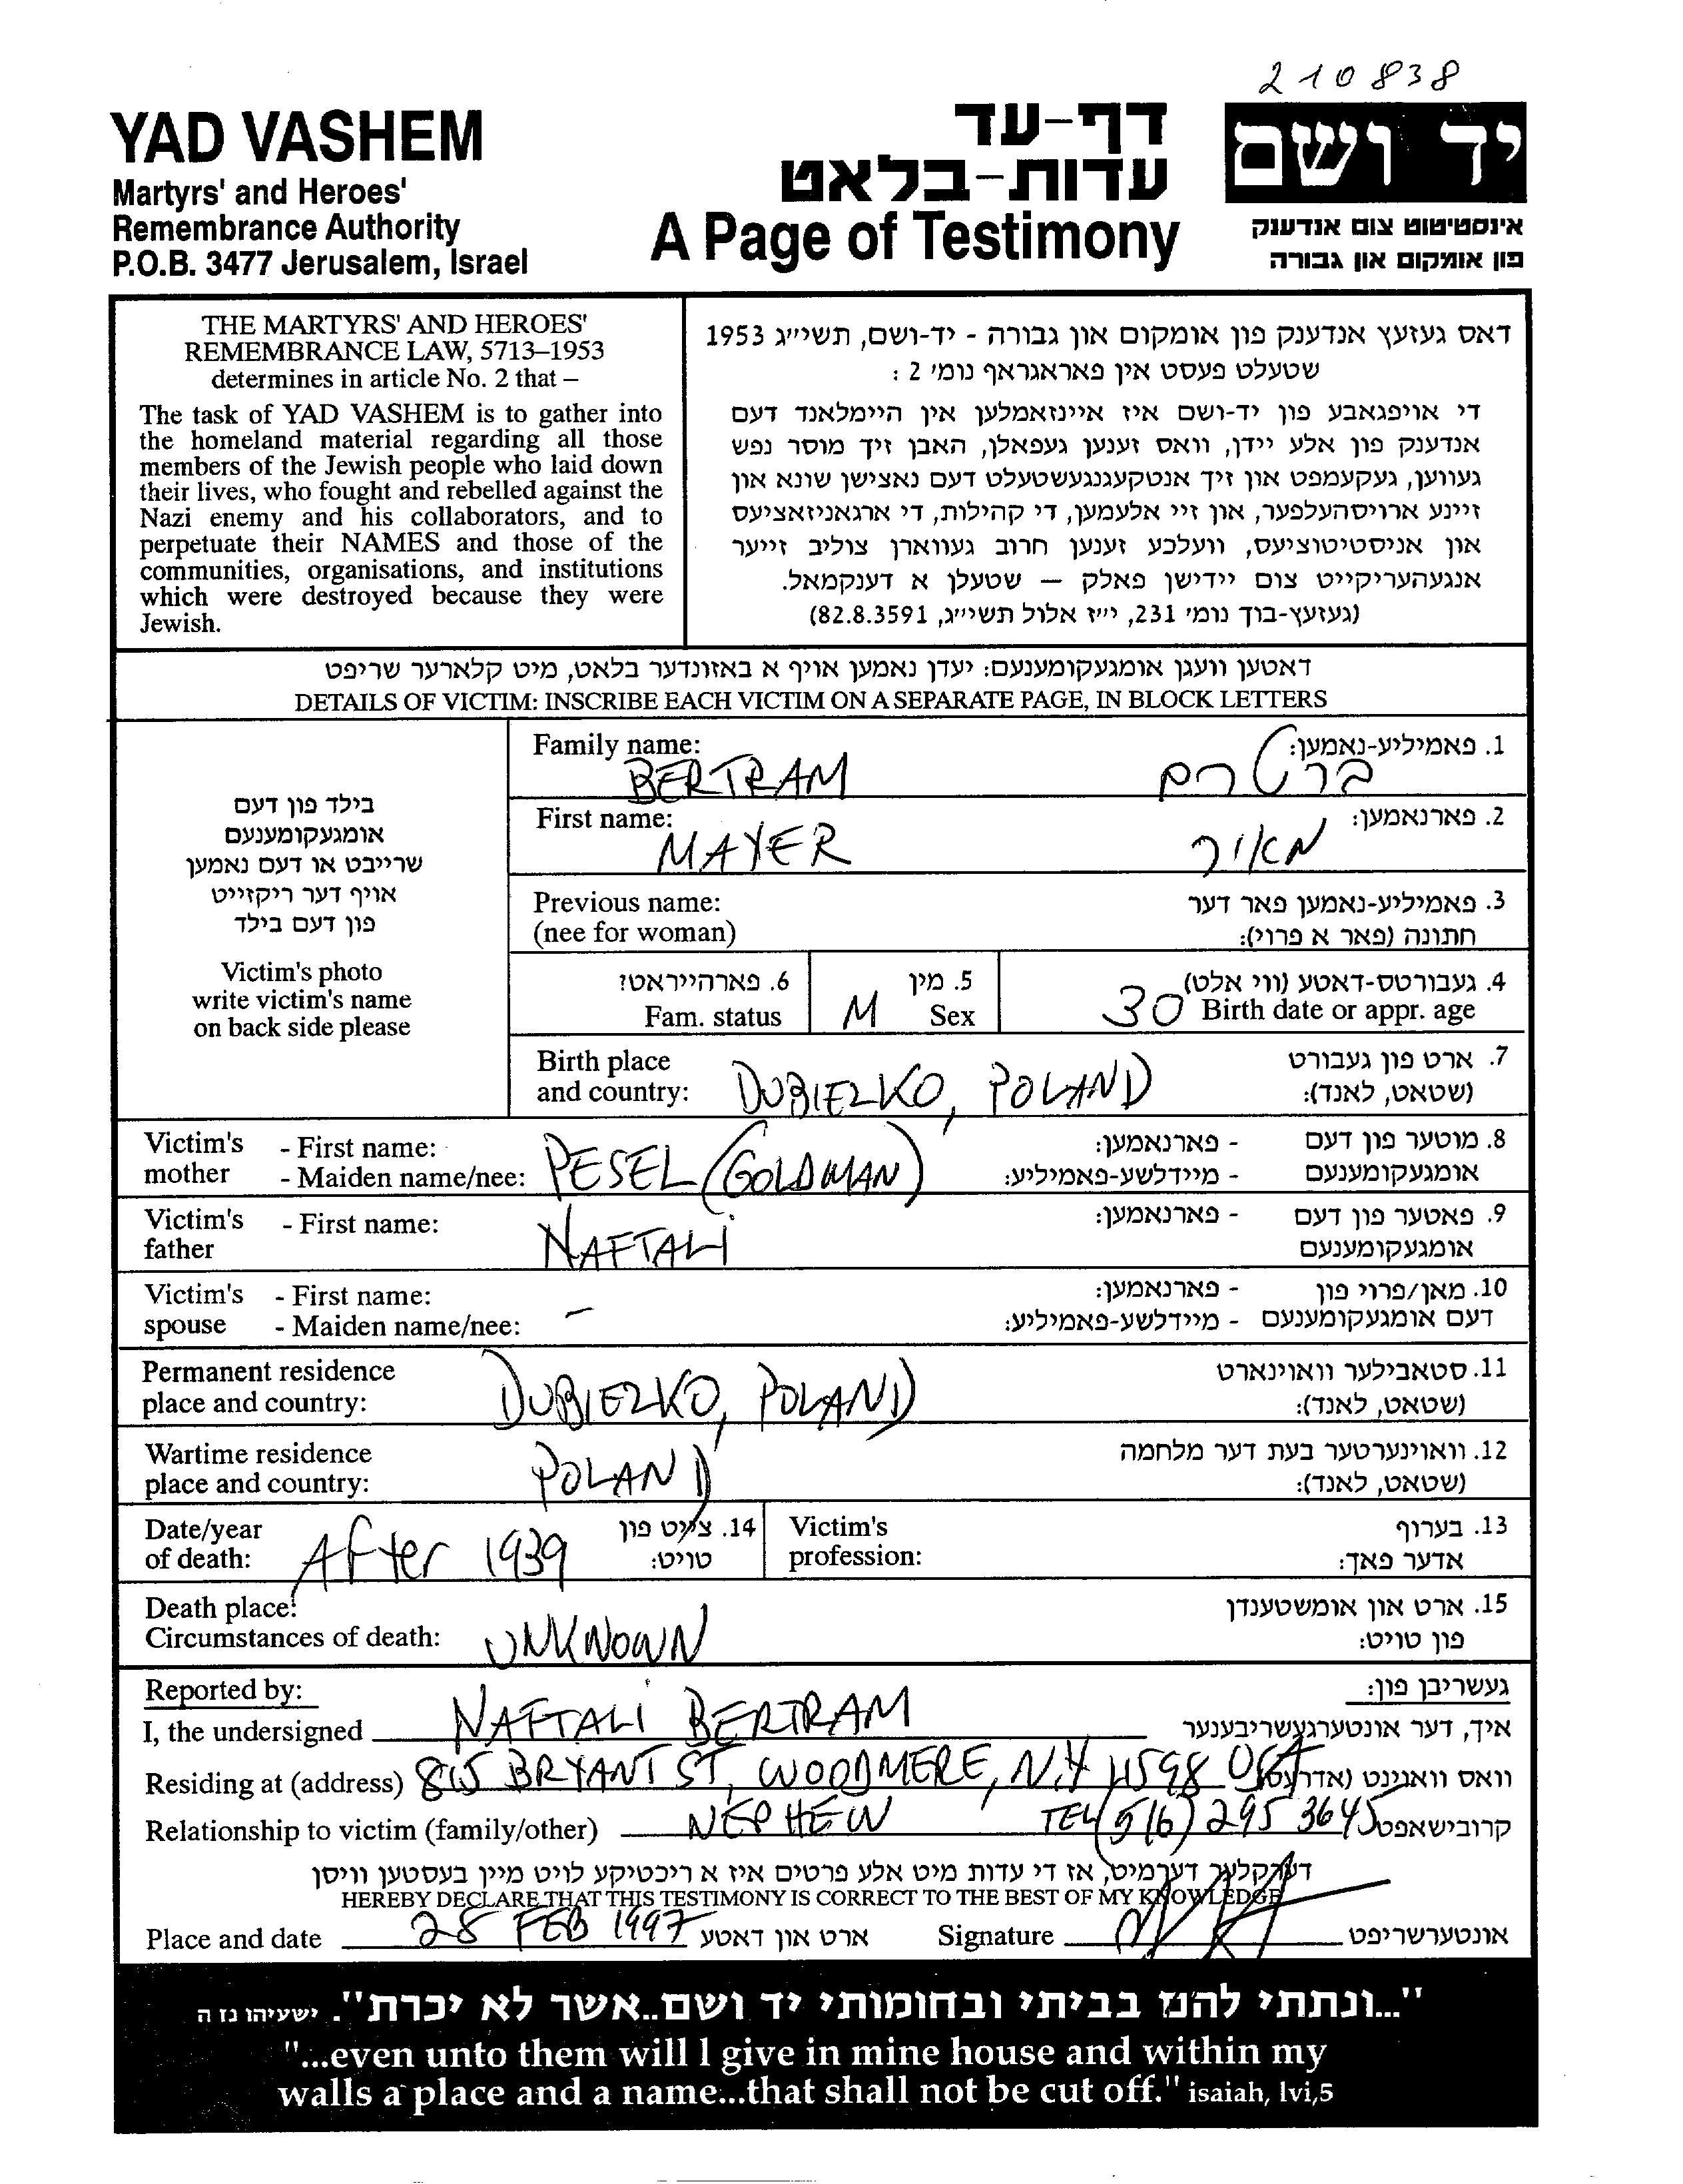 210838
YAD VASHEM
Martyrs' and Heroes'
Remembrance Authority
P.O.B. 3477 Jerusalem, Israel
דף-עד
עדות-בלאט
A Page of Testimony
יד ושם
אינסטיטוט צום אנדענק
פון אומקום און גבורה
THE MARTYRS' AND HEROES'
REMEMBRANCE LAW, 5713–1953
determines in article No. 2 that –
The task of YAD VASHEM is to gather into
the homeland material regarding all those
members of the Jewish people who laid down
their lives, who fought and rebelled against the
Nazi enemy and his collaborators, and to
perpetuate their NAMES and those of the
communities, organisations, and institutions
which were destroyed because they were
Jewish.
דאס געזעץ אנדענק פון אומקום און גבורה - יד-ושם, תשי״ג 1953
שטעלט פעסט אין פאראגראף נומ׳ 2 :
די אויפגאבע פון יד-ושם איז איינזאמלען אין היימלאנד דעם
אנדענק פון אלע יידן, וואס זענען געפאלן, האבן זיך מוסר נפש
געווען, געקעמפט און זיך אנטקעגנגעשטעלט דעם נאצישן שונא און
זיינע ארויסהעלפער, און זיי אלעמען, די קהילות, די ארגאניזאציעס
און אניסטיטוציעס, וועלכע זענען חרוב געווארן צוליב זייער
אנגעהעריקייט צום יידישן פאלק — שטעלן א דענקמאל.
(געזעץ-בוך נומ׳ 231, י״ז אלול תשי״ג, 82.8.3591)
דאטען וועגן אומגעקומענעם: יעדן נאמען אויף א באזונדער בלאט, מיט קלארער שריפט
DETAILS OF VICTIM: INSCRIBE EACH VICTIM ON A SEPARATE PAGE, IN BLOCK LETTERS
בילד פון דעם
אומגעקומענעם
שרייבט או דעם נאמען
אויף דער ריקזייט
פון דעם בילד
Victim's photo
write victim's name
on back side please
Family name: 1. פאמיליע-נאמען:
BERTRAM ברטרם
First name: 2. פארנאמען:
MAYER מאיר
Previous name: 3. פאמיליע-נאמען פאר דער
(nee for woman) חתונה (פאר א פרוי):
6. פארהייראט? 5. מין 4. געבורטס-דאטע (ווי אלט)
Fam. status M Sex 30 Birth date or appr. age
Birth place 7. ארט פון געבורט
and country: DUBIEZKO, POLAND (שטאט, לאנד):
Victim's - First name: - פארנאמען: 8. מוטער פון דעם
mother - Maiden name/nee: PESEL (GOLDMAN) - מיידלשע-פאמיליע: אומגעקומענעם
Victim's - First name: - פארנאמען: 9. פאטער פון דעם
father NAFTALI אומגעקומענעם
Victim's - First name: - פארנאמען: 10. מאן/פרוי פון
spouse - Maiden name/nee: – - מיידלשע-פאמיליע: דעם אומגעקומענעם
Permanent residence 11. סטאבילער וואוינארט
place and country: DUBIEZKO, POLAND (שטאט, לאנד):
Wartime residence 12. וואוינערטער בעת דער מלחמה
place and country: POLAND (שטאט, לאנד):
Date/year 14. צייט פון Victim's 13. בערוף
of death: After 1939 טויט: profession: אדער פאך:
Death place: 15. ארט און אומשטענדן
Circumstances of death: UNKNOWN פון טויט:
Reported by: געשריבן פון:
I, the undersigned NAFTALI BERTRAM איך, דער אונטערגעשריבענער
Residing at (address) 815 BRYANT ST, WOODMERE, N.Y 11598 USA וואס וואגינט (אדרעס)
Relationship to victim (family/other) NEPHEW TEL (516) 295 3645 קרובישאפט
דערקלער דערמיט, אז די עדות מיט אלע פרטים איז א ריכטיקע לויט מיין בעסטען וויסן
HEREBY DECLARE THAT THIS TESTIMONY IS CORRECT TO THE BEST OF MY KNOWLEDGE
Place and date 28 FEB 1997 ארט און דאטע Signature אונטערשריפט
"...ונתתי להם בביתי ובחומותי יד ושם..אשר לא יכרת". ישעיהו נז ה
"...even unto them will I give in mine house and within my
walls a place and a name...that shall not be cut off." isaiah, lvi,5